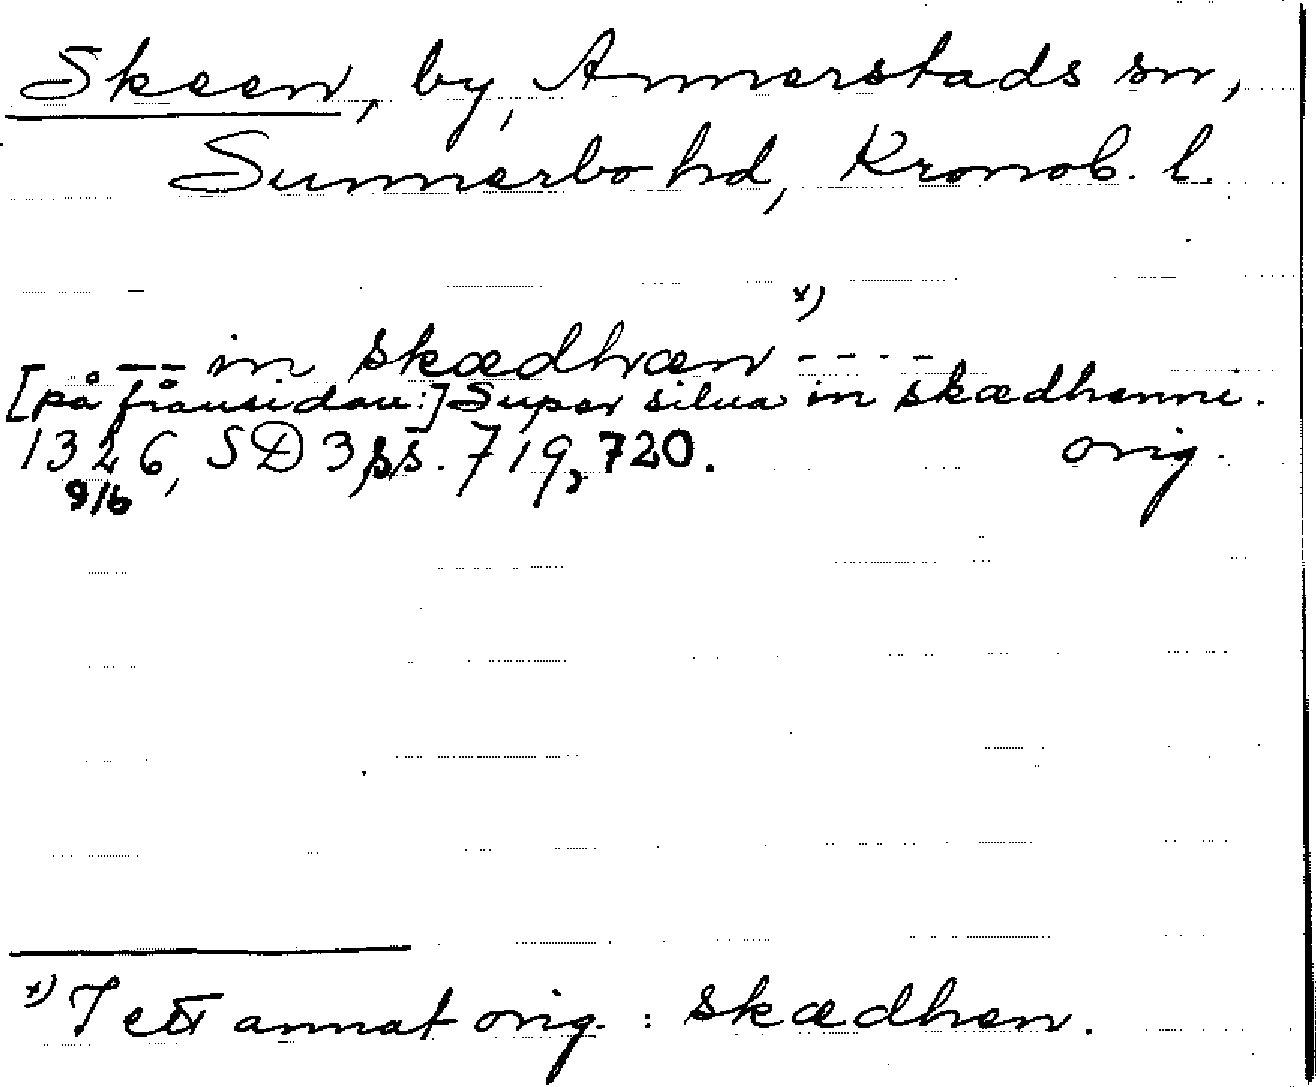 Skeen, by, Annerstads sn,
Sunnerbo hd, Kronob. l.
x)
— — in skædhæn - - - -
[på frånsidan:] Super silua in skædhenni.
1326, SD 3, ss. 719, 720. orig.
9/6
x) I ett annat orig. : skædhen.